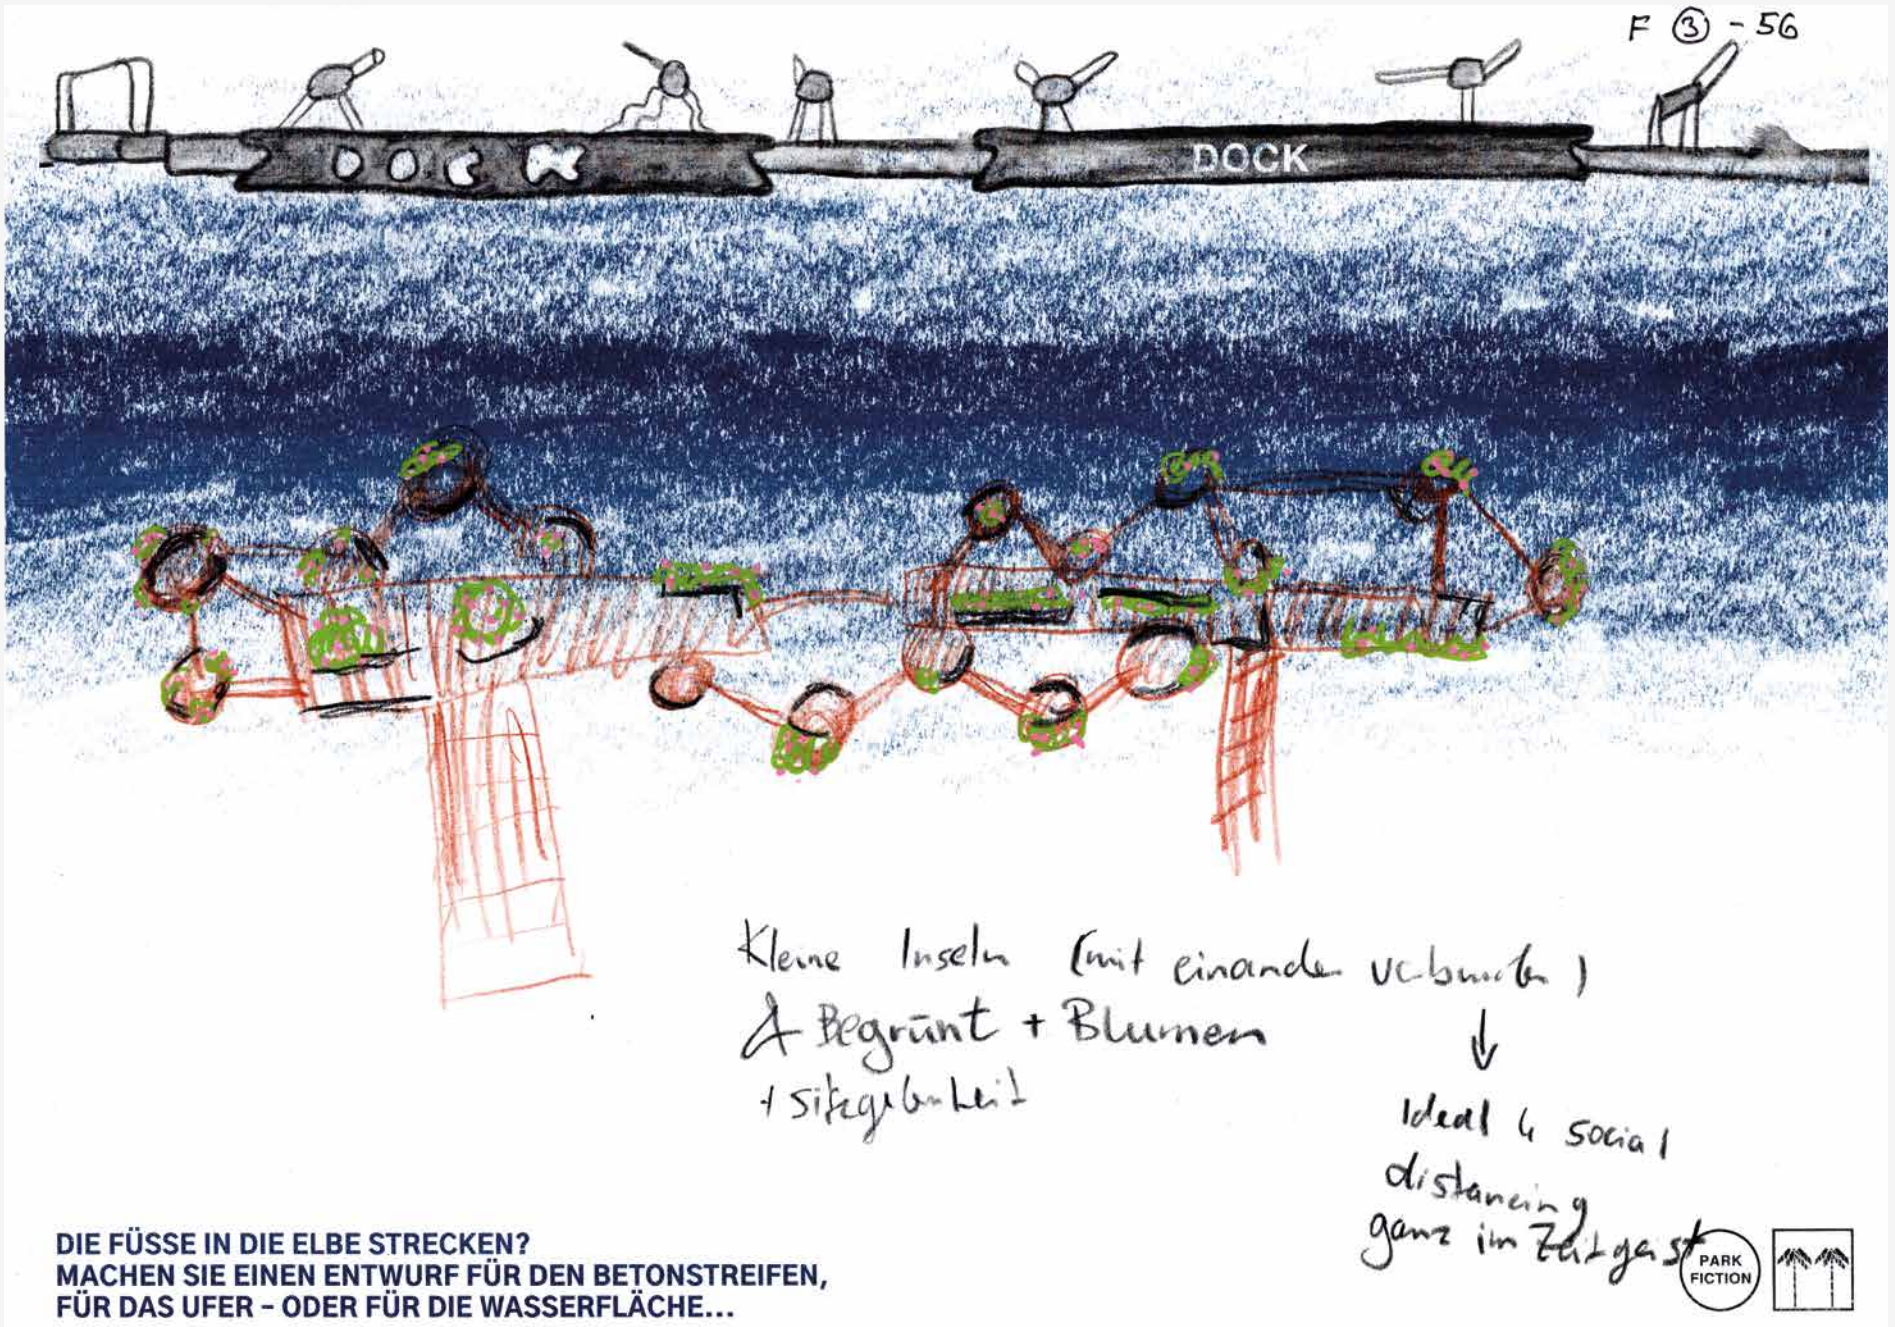 F ③ - 56
DOCK
DOCK
Kleine Inseln (mit einander verbunden)
Begrünt + Blumen
+ Sitzgelegenheit
↓
Ideal 4 social
distancing
ganz im Zeitgeist
DIE FÜSSE IN DIE ELBE STRECKEN?
MACHEN SIE EINEN ENTWURF FÜR DEN BETONSTREIFEN,
FÜR DAS UFER – ODER FÜR DIE WASSERFLÄCHE...
PARK
FICTION